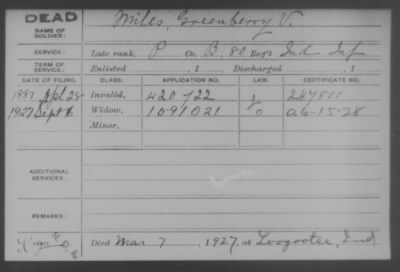 DEAD
NAME OF SOLDIER: Miles, Greenberry V.
SERVICE: Late rank, P Co. B, 80 Reg't Ind Inf
TERM OF SERVICE: Enlisted , 1 Discharged , 1
DATE OF FILING. CLASS. APPLICATION NO. LAW. CERTIFICATE NO.
1881 Apl 28 Invalid, 420 722
1927 Sept Widow, 1591021 a 6-15-28
Minor,
ADDITIONAL SERVICES:
REMARKS:
Died Mar 7, 1927, at Loogootee, Ind